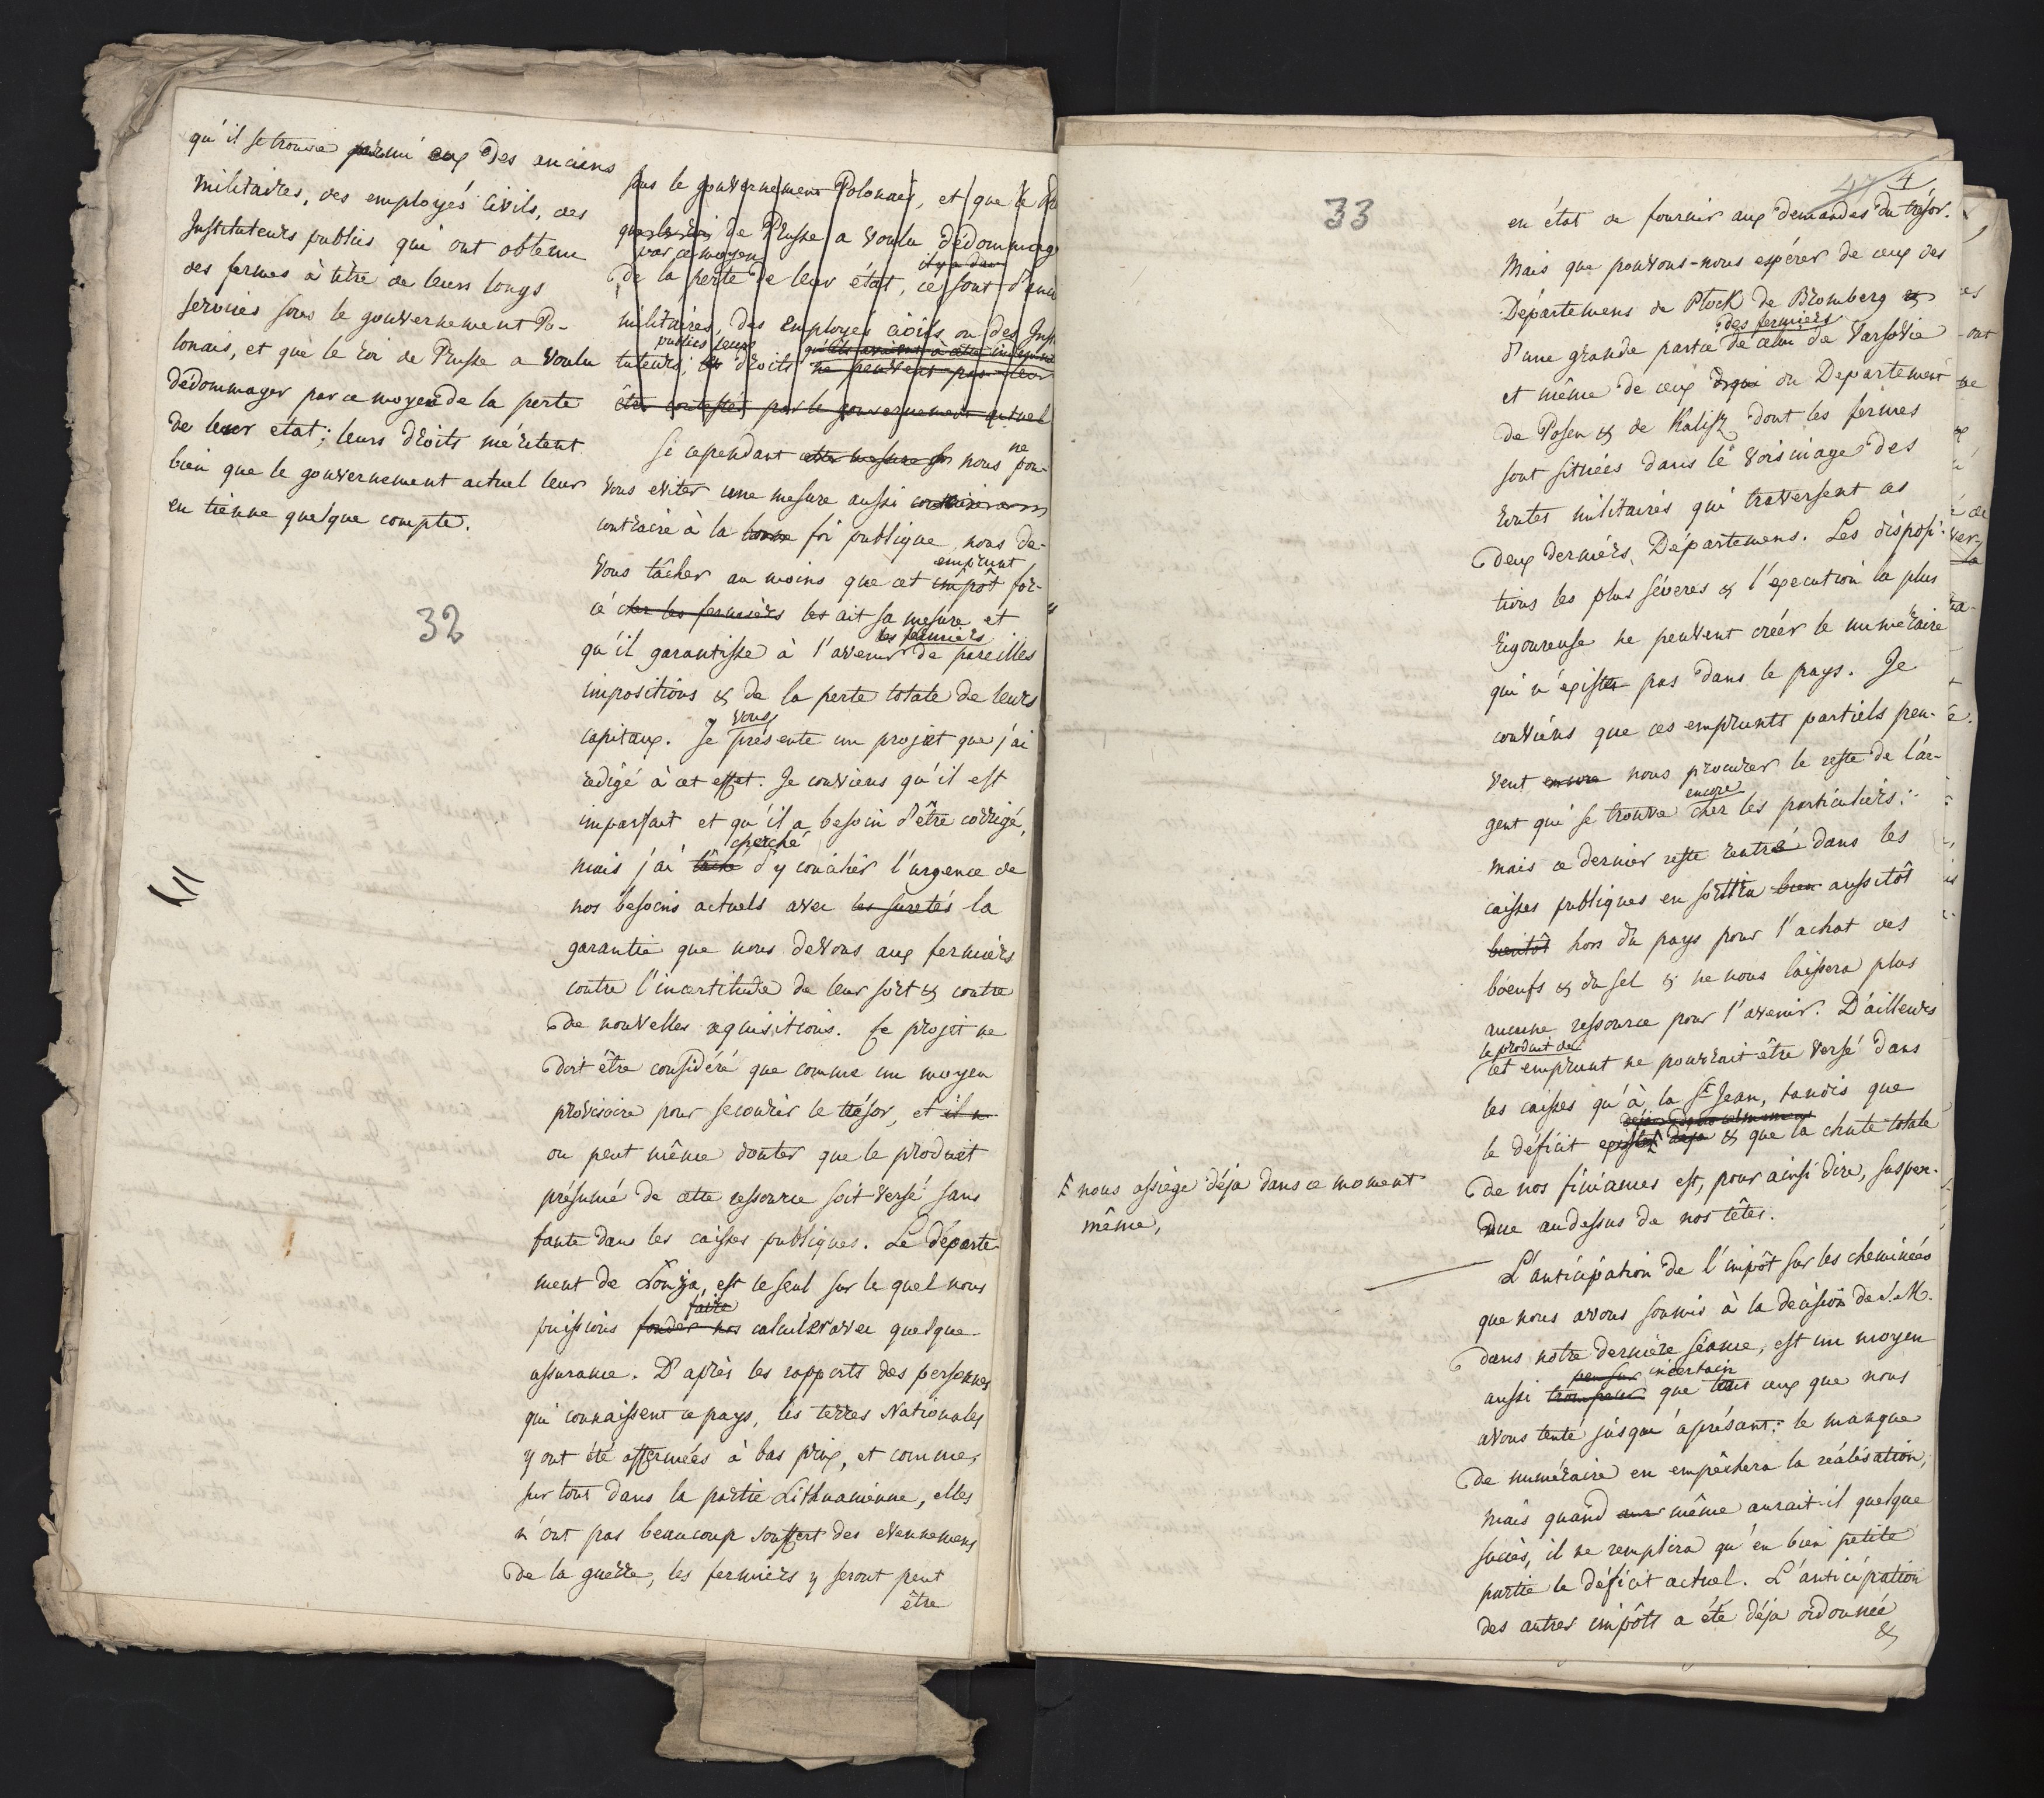 qu'il se trouve parmi eux des anciens
militaires, des employés civils, des
Instituteurs publics qui ont obtenu
des fermes à titre de leurs longs
services sous le gouvernement Po-
lonais, et que le roi de Prusse a voulu
dédommager par ce moyen de la perte
de leur etat; leurs droits méritent
bien que le gouvernement actuel leur
en tienne quelque compte.
32
pas le gouvernement Polonais, et que le
de Prusse a voulu dédommage
par ce moyen
de la perte de leur état, ce sont d'
militaires, des Employés civils ou des Inst
publics leurs
tuteurs; les droits ne peuvent pas leur
être contestés par le gouvernement actuel
Si cependant cette mesure nous ne pou-
vous eviter une mesure aussi
contraire à la bonne foi publique, nous de-
emprunt
vous tâcher au moins que cet impôt for-
cé chez les fermiers les ait sa mesure et
les fermiers
qu'il garantisse à l'avenir de pareilles
impositions & de la perte totale de leurs
vous
capitaux. Je présente un projet que j'ai
rédigé à cet effet. Je conviens qu'il est
imparfait et qu'il a besoin d'être corrigé,
cherché
mais j'ai tâché d'y concilier l'urgence de
nos besoins actuels avec les suretés la
garantie que nous devons aux fermiers
contre l'incertitude de leur sort & contre
de nouvelles requisitions. Ce projet ne
doit être considéré que comme un moyen
provisoire pour secourir le trésor, et il n
on peut même douter que le produit
présumé de cette ressource soit versé sans
faute dans les caisses publiques. Le départe-
ment de Łomża, est le seul sur le quel nous
faire
puissions fonder nos calculer avec quelque
assurance. D'après les rapports des personnes
qui connaissent ce pays, les terres Nationales
y ont été affermées à bas prix, et comme,
sur tout dans la partie Lithuanienne, elles
n'ont pas beaucoup souffert des evennemens
de la guerre, les fermiers y seront peut
être
33
4
en état de fournir aux demandes du trésor.
Mais que pouvons-nous espérer de ceux des
Départemens de Plock de Bromberg &
des fermiers
d'une grande partie de celui de Varsovie
et même de ceux du Departement
de Posen & de Kalisz dont les fermes
sont situées dans le voisinage des
routes militaires qui traversent ces
deux derniers Départemens. Les disposi-
tions les plus sévères & l'execution la plus
rigoureuse ne peuvent créer le numéraire
qui n'existe pas dans le pays. Je
conviens que ces emprunts partiels peu-
vent encore nous procurer le reste de l'ar-
encore
gent qui se trouve chez les particuliers;
mais ce dernier reste rentré dans les
caisses publiques en sortira bien aussitôt
bientôt hors du pays pour l'achat des
boeufs & du sel & ne nous laissera plus
aucune ressource pour l'avenir. D'ailleurs
le produit de
cet emprunt ne pourrait être versé dans
les caisses qu'à la St Jean, tandis que
le déficit existe déja & que la chute totale
de nos finances est, pour ainsi dire, suspen-
due audessus de nos têtes.
nous assiége déja dans ce moment
même,
L'anticipation de l'impôt sur les cheminées
que nous avons soumis à la decision de S. M.
dans notre dernière séance, est un moyen
peu sur incertain
aussi trompeur que tous ceux que nous
avons tenté jusqu'aprésant: le manque
de numéraire en empêchera la réalisation,
mais quand même aurait-il quelque
succès, il ne remplira qu'en bien petite
partie le déficit actuel. L'anticipation
des autres impôts a été déja ordonnée
&